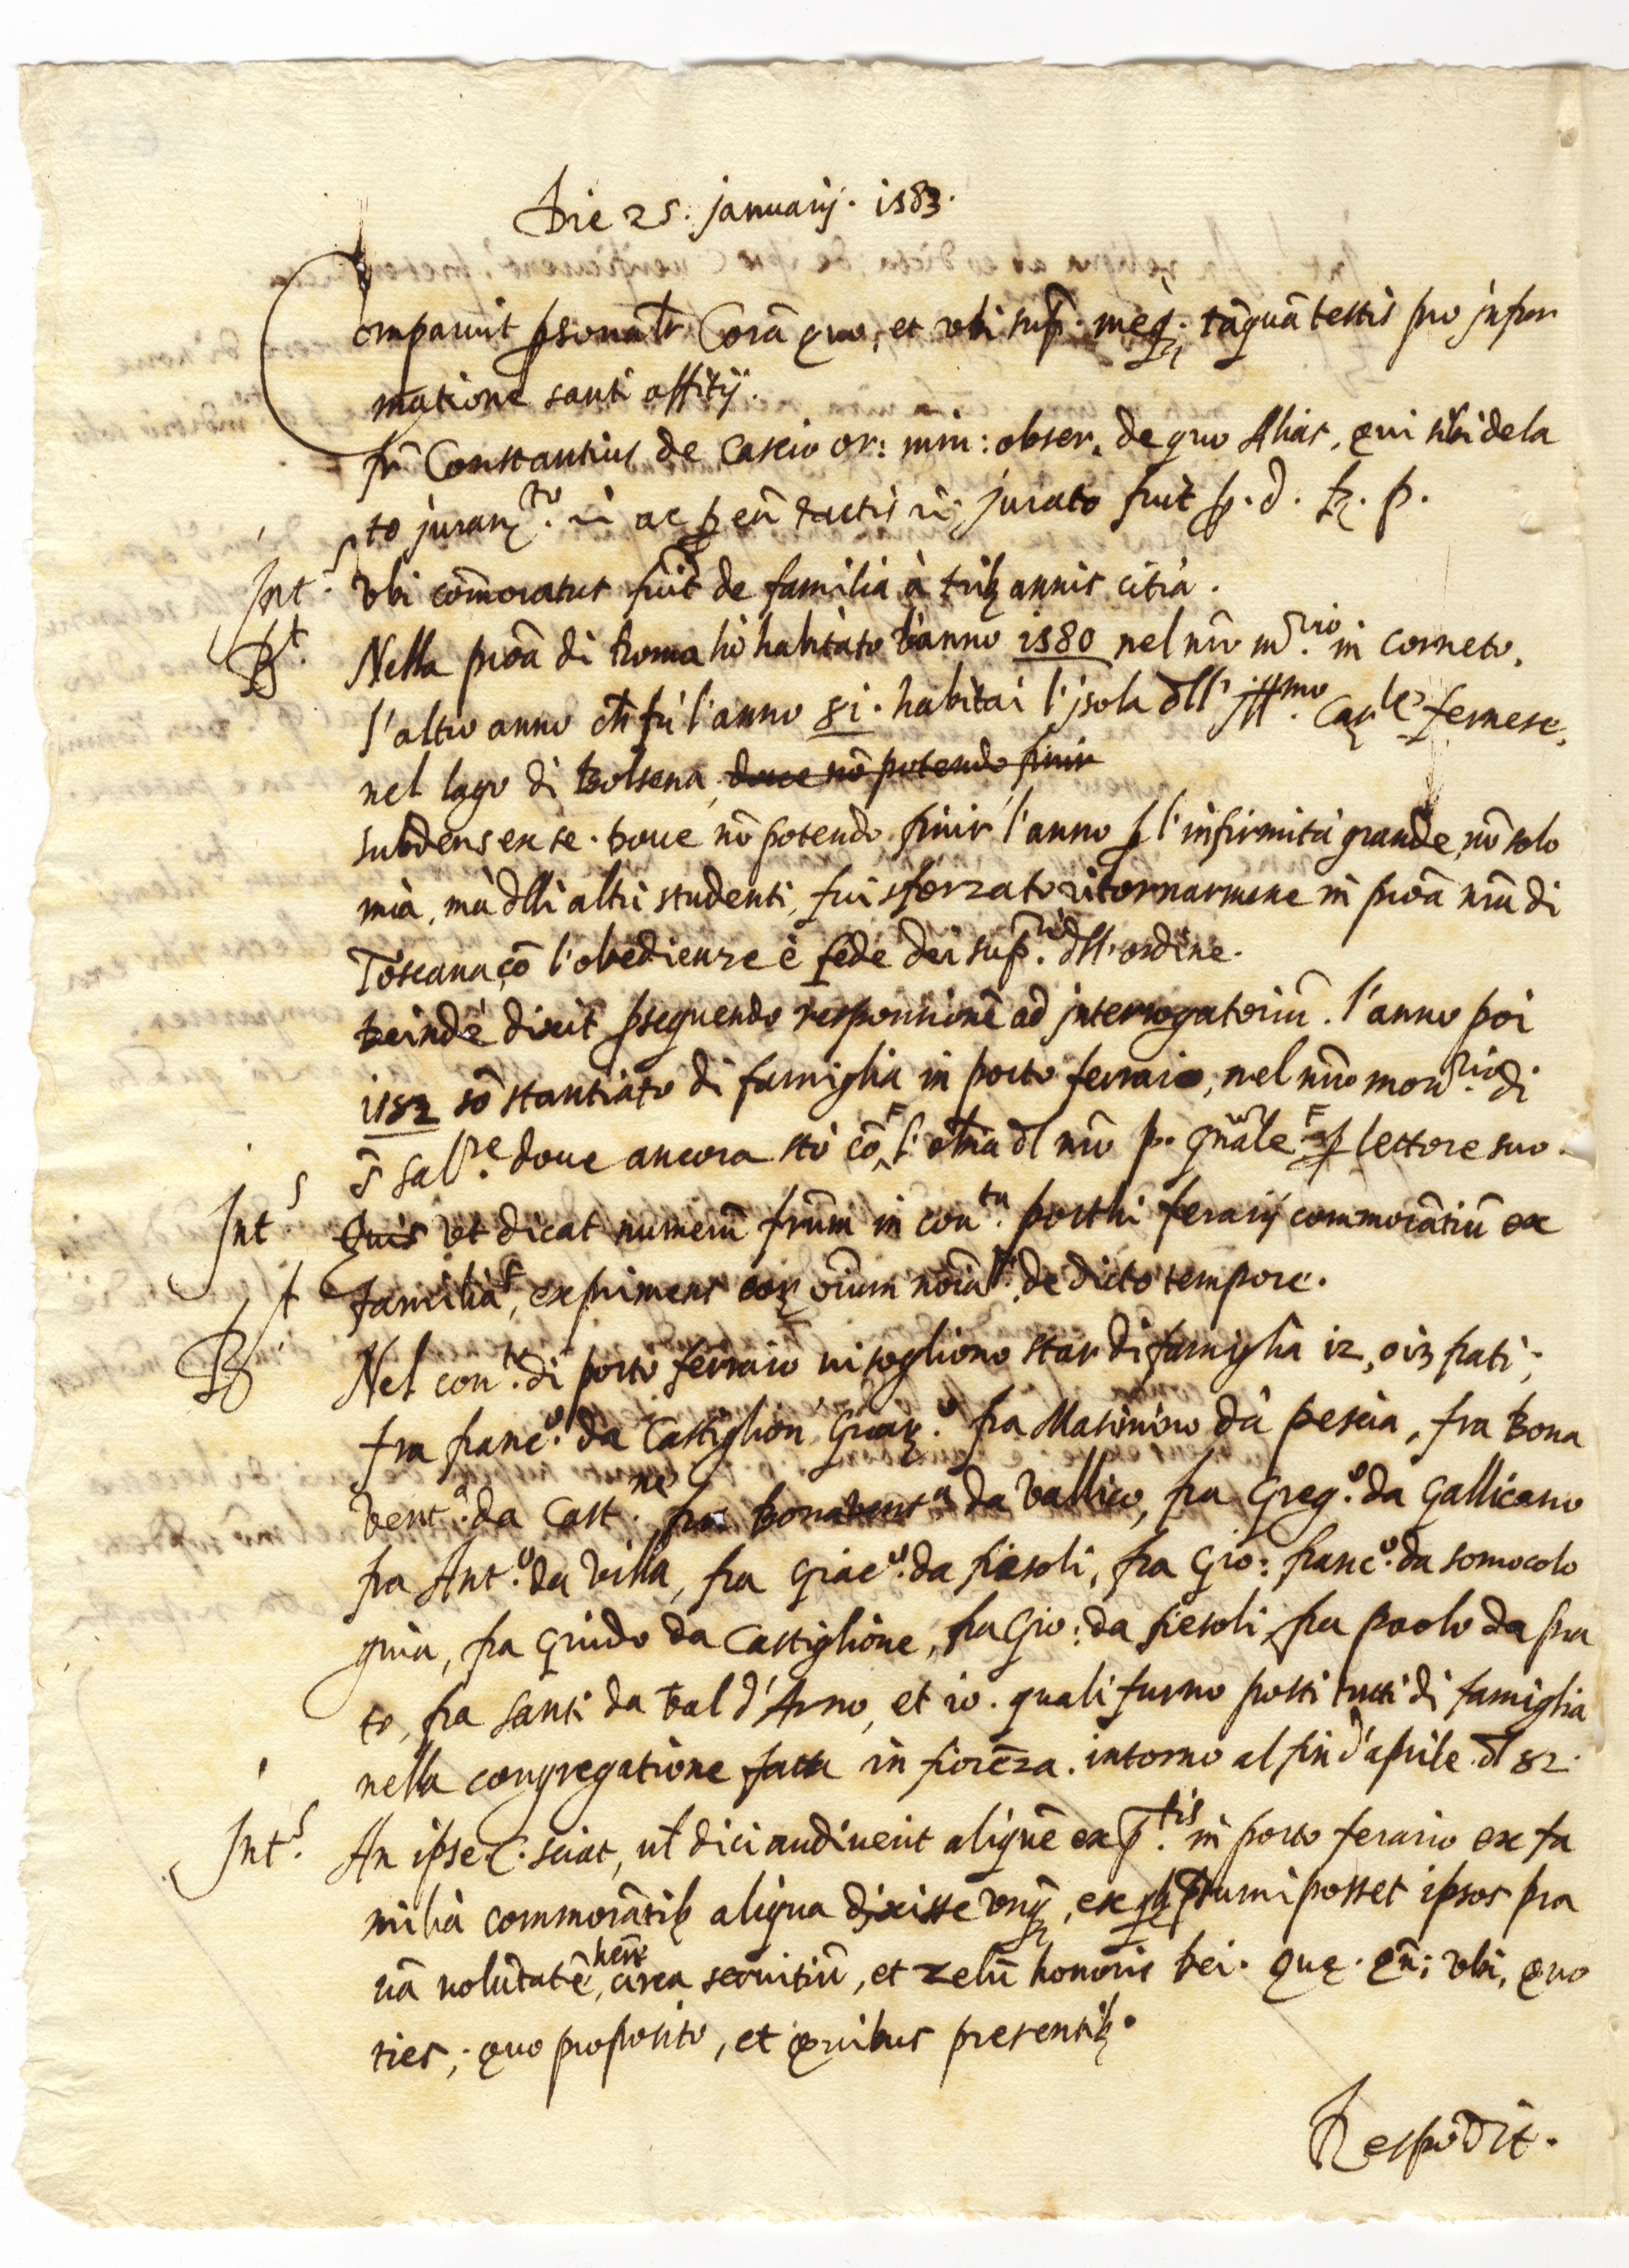 Die 25. januarij. 1583.
Comparuit psonalr Corā quo, et ubi sup. meq; tāquā testis pro jnfor
matione santi offitij.
fr Constantius de Cascio or: min: obser. de quo Alias, qui sibi dela
to juramto. ac p eū tactis jurato fuit p. d.
Ints. Ubi cōmoratus fuit de familia à trib annis citrà.
Rt. Nella proā di Roma hò habitato l'anno 1580 nel nro mrio. in corneto.
l'altro anno ch fù l'anno 81. habitai l'jsola dll' jllmo. Carle fernese,
nel lago di Bolsena, doue nō potendo finir
subdens ex se. Doue nō potendo finir l'anno p l'infirmità grande, nō solo
mia, mà dlli altri studenti, fui sforzato ritornarmene in proā nra di
Toscana, cō l'obedienze è fede dei supri. dll'ordine.
Deinde dixit psequendo responsionē ad jnterrogatoriū. l'anno poi
1582 sō stantiato di famiglia in porto ferraio, nel nro monrio. di
S Salre. doue ancora stò cō l' obia dl nro p. gnāle p lettore suo.
Ints Quis ut dicat numerū frūm in contu. porthi ferarij commorātiū ex
familia, expriment eor oium noia. de dicto tempore.
Rt Nel conto. di porto ferraio ui sogliono star di famiglia 12, o 13 frati;
fra franco. da Castiglion' fra Masimino da pescia, fra Bona
venta. da Castne. fra Bonaventa da Vallico, fra Grego. da Gallicano
fra Anto. da Villa, fra Giaco. da fiesoli, fra Gio: franco. da somocolo
gnia, fra Guido da Castiglione, fra Gio: da fiesoli, fra paolo da pra
to, fra Santi da Val d'Arno, et io. quali furno posti tutti di famiglia
nella congregatione fatta in fiorēza. intorno al fin d'aprile dl 82.
Ints. An ipse C. sciat, ul dici audiuerit aliquē ex ptis. in porto ferario ex fa
milia commorātib aliqua dixisse unq, ex qb psumi posset ipsos pra
uā uolūtatē, here circa seruitiū, et zelū honoris Dei. que. qn; ubi, quo
ties; quo proposito, et quibus presentib.
Respōdit.